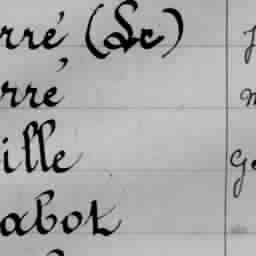 rré (Le)
rré
ille
abot